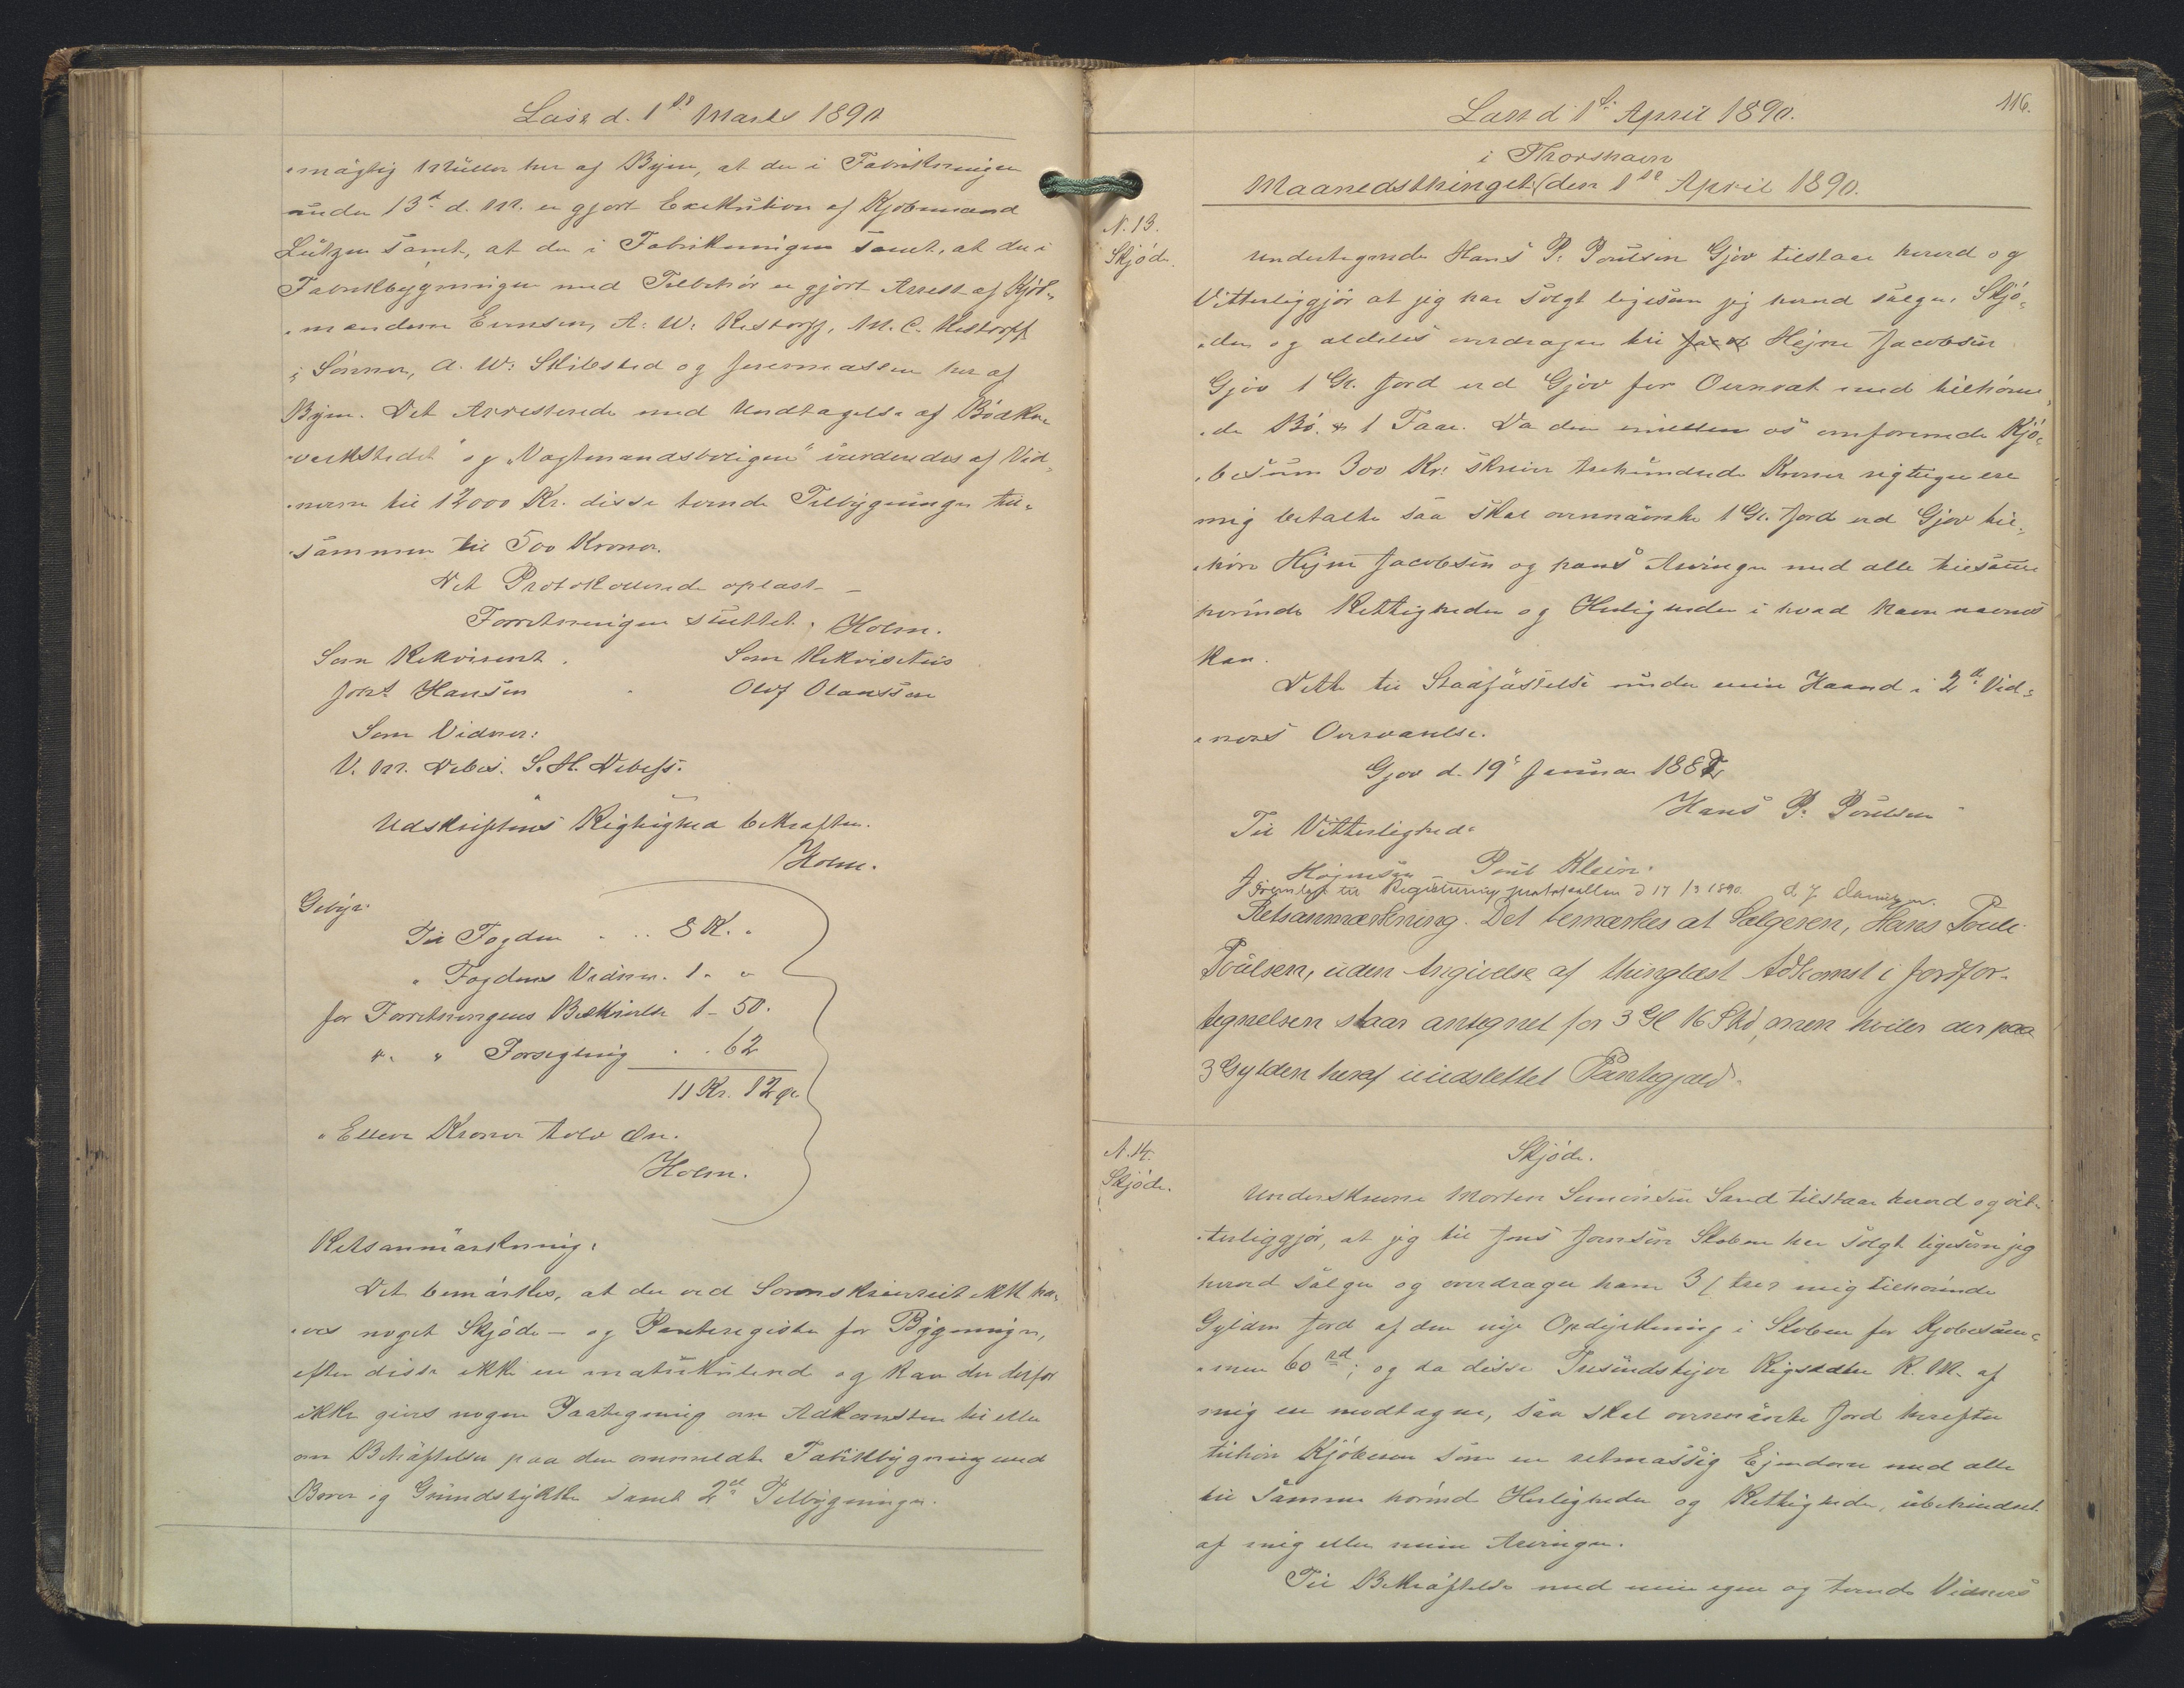 Læst d. 1ste Marts 1890
-mægtig Müller her af Byen, at der i Fabrikningen
under 13de d. M. er gjort Exekution af Kjöbmand
Lützen samt, at der i Fabrikningen samt, at der i
Fabrikbygningen med Tilbehör er gjort Arrest af Kjöb-
-mændene Evensen, A. W. Restorff, M. C. Restorff
& Sönner, A. W. Skibsted og her af
Byen. Det Arresterede med Undtagelse af "Bödker
værkstedet" og "Vagtmandsboligen" vurderedes af Vid-
-nerne til 12000 Kr. disse tvende Tilbygninger til-
-sammen til 500 Kroner.
Det Protokollerede oplæst.
Forretningen sluttet. Holm.
Som Rekvirent. Som Rekvisitus
Joh. Hansen Olof Olaussen
Som Vidner:
V. M. Debes. S. H. Debess.
Udskriftens Rigtighed bekræftes.
Holm.
Gebyr:
Til Fogden . .. 8 K. "
" Fogdens Vidner. 1 " "
for Forretningens Beskrivelse 1 - 50.
" " Forsegling . . 62
11 Kr. 12 Ør.
"Elleve Kroner tolv Øre.
Holm.
Retsanmärkning:
Det bemärkes, at der ved Sorenskriveriet ikke ha-
-ves noget Skjöde- og Panteregister for Bygninger,
efter disse ikke er matrikulered og kan der derfor
ikke gives nogen Paategning om Adkomsten til eller
om Behäftelser paa den ommeldte Fabrikbygning med
og Grundstykke samt 2de Tilbygninger.
116.
Læst d. 1ste April 1890.
i Thorshavn
Maanedsthinget (den 1ste April 1890.
N. 13.
Skjöde.
Undertegnede Hans P. Poulsen Gjov tilstaar herved og
Vitterliggjör at jeg har solgt ligesom jeg herved sælger, Skjö-
-der og aldeles overdrager til Jacob Hejne Jacobsen
Gjov 1 Gl. Jord ved Gjov for Ovenvat med tilhören-
-de Bö. & 1 Faar. Da den imellem os omforenede Kjö-
-besum 300 Kr. skriver trehundrede Kroner rigtigen ere
mig betalte saa skal ovennämte 1 Gl. Jord ved Gjov til-
-höre Hejne Jacobsen og hans Arvinger med alle tilsamme
hörende Rettigheder og Herligheder i hvad Navn nævnes
kan.
Dette til Stadfästelse under min Haand i 2de Vid-
-ners Overværelse.
Gjov d. 19de Januar 188
Hans P. Poulsen
Til Vitterlighed:
J. Højnesen Poul Klein.
Fremlagt til Registrering protokollen d 17/3 1890. d. J. Danielsen.
Retsanmærkning. Det bemærkes at Sælgeren, Hans Poule
Poulsen, uden Angivelse af thinglæst Adkomst i Jordfor-
tegnelsen staar antegnet for 3 Gl 16 Skd, men hviler der paa
3 Gylden heraf uudslettet Pantegjæld.
N. 14.
Skjöde.
Skjöde.
Underskrevne Morten Simonsen Sand tilstaar herved og vit-
-terliggjör, at jeg til Jens Joensen Skoben har solgt ligesom jeg
herved sälger og overdrager ham 3/ tre? mig tilhörende
Gylden Jord af den nye Opdyrkning i Skoben for Kjöbesum-
-men 60 rd; og da disse Tresindstyve Rigsdaler R. M. af
mig ere modtagne, saa skal ovennävnte Jord herefter
tilhöre Kjöberen som en retmässig Ejendom med alle
til samme hörende Herligheder og Rettigheder, ubehindret
af mig eller mine Arvinger.
Til Bekräftelse med min egen og tvende Vidners